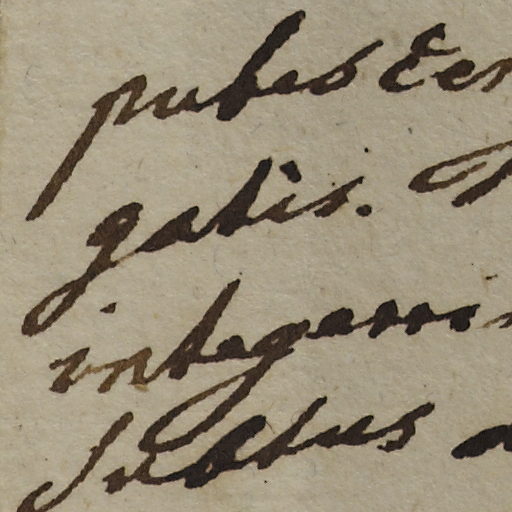 pubescen
gatis.
integerri
Subtus